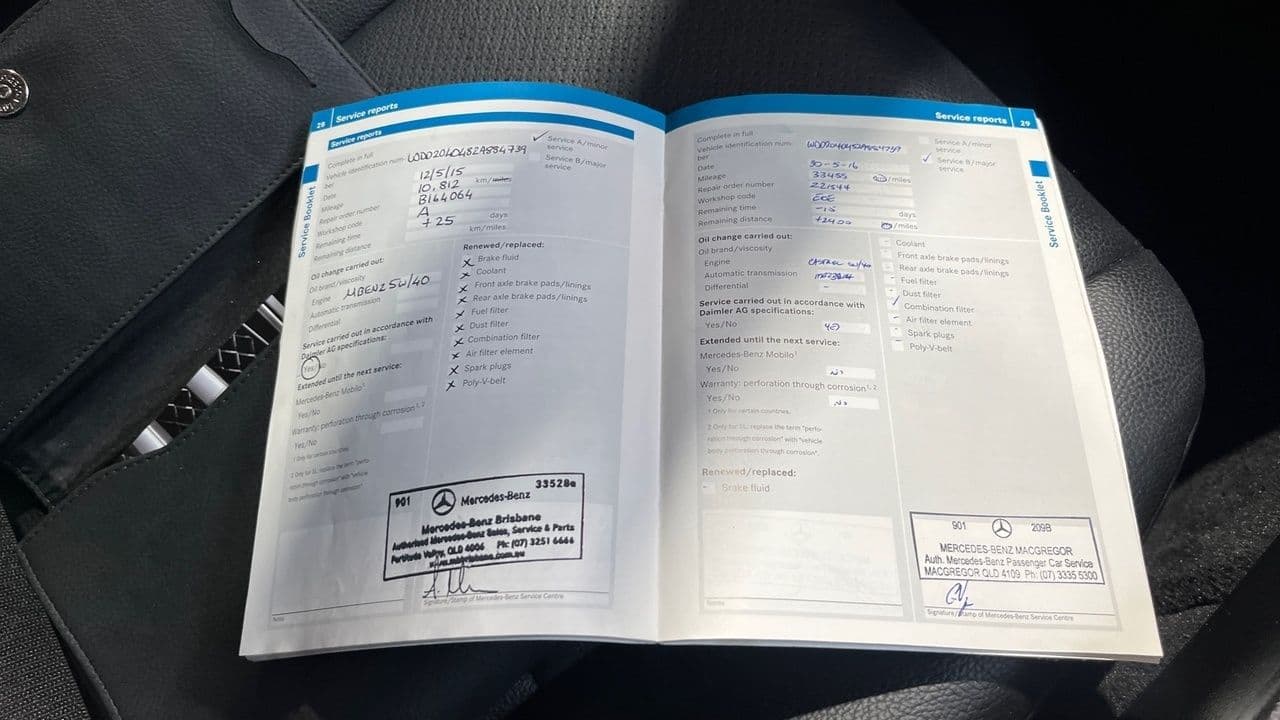 28 Service reports
Service reports
Service Booklet
Complete in full
Vehicle identification num-
ber
WDD2040482A884739
Date 12/5/15
Mileage 10,812 km/miles
Repair order number B164064
Workshop code A
Remaining time +25 days
Remaining distance km/miles
✓ Service A/minor
service
Service B/major
service
Oil change carried out:
Oil brand/viscosity
Engine MBENZ 5W/40
Automatic transmission
Differential
Service carried out in accordance with
Daimler AG specifications:
Yes/No
Extended until the next service:
Mercedes-Benz Mobilo¹
Yes/No
Warranty: perforation through corrosion¹, ²
Yes/No
1 Only for certain countries.
2 Only for SL: replace the term "perfo-
ration through corrosion" with "vehicle
body perforation through corrosion".
Renewed/replaced:
x Brake fluid
x Coolant
x Front axle brake pads/linings
x Rear axle brake pads/linings
x Fuel filter
x Dust filter
x Combination filter
x Air filter element
x Spark plugs
x Poly-V-belt
901 Mercedes-Benz 33528a
Mercedes-Benz Brisbane
Authorised Mercedes-Benz Sales, Service & Parts
Fortitude Valley, QLD 4006 Ph: (07) 3251 6666
Signature/Stamp of Mercedes-Benz Service Centre
Notes
Service reports 29
Service Booklet
Complete in full
Vehicle identification num-
ber
WDD2040482A884739
Date 30-5-16
Mileage 33455 km/miles
Repair order number 221544
Workshop code
Remaining time -15 days
Remaining distance +2400 km/miles
Service A/minor
service
✓ Service B/major
service
Oil change carried out:
Oil brand/viscosity
Engine CASTROL 5W/40
Automatic transmission
Differential -
Service carried out in accordance with
Daimler AG specifications:
Yes/No YES
Extended until the next service:
Mercedes-Benz Mobilo¹
Yes/No No
Warranty: perforation through corrosion¹, ²
Yes/No No
1 Only for certain countries.
2 Only for SL: replace the term "perfo-
ration through corrosion" with "vehicle
body perforation through corrosion".
Renewed/replaced:
- Brake fluid
- Coolant
- Front axle brake pads/linings
- Rear axle brake pads/linings
- Fuel filter
- Dust filter
✓ Combination filter
- Air filter element
- Spark plugs
- Poly-V-belt
901 209B
MERCEDES-BENZ MACGREGOR
Auth. Mercedes-Benz Passenger Car Service
MACGREGOR QLD 4109 Ph: (07) 3335 5300
Signature/Stamp of Mercedes-Benz Service Centre
Notes